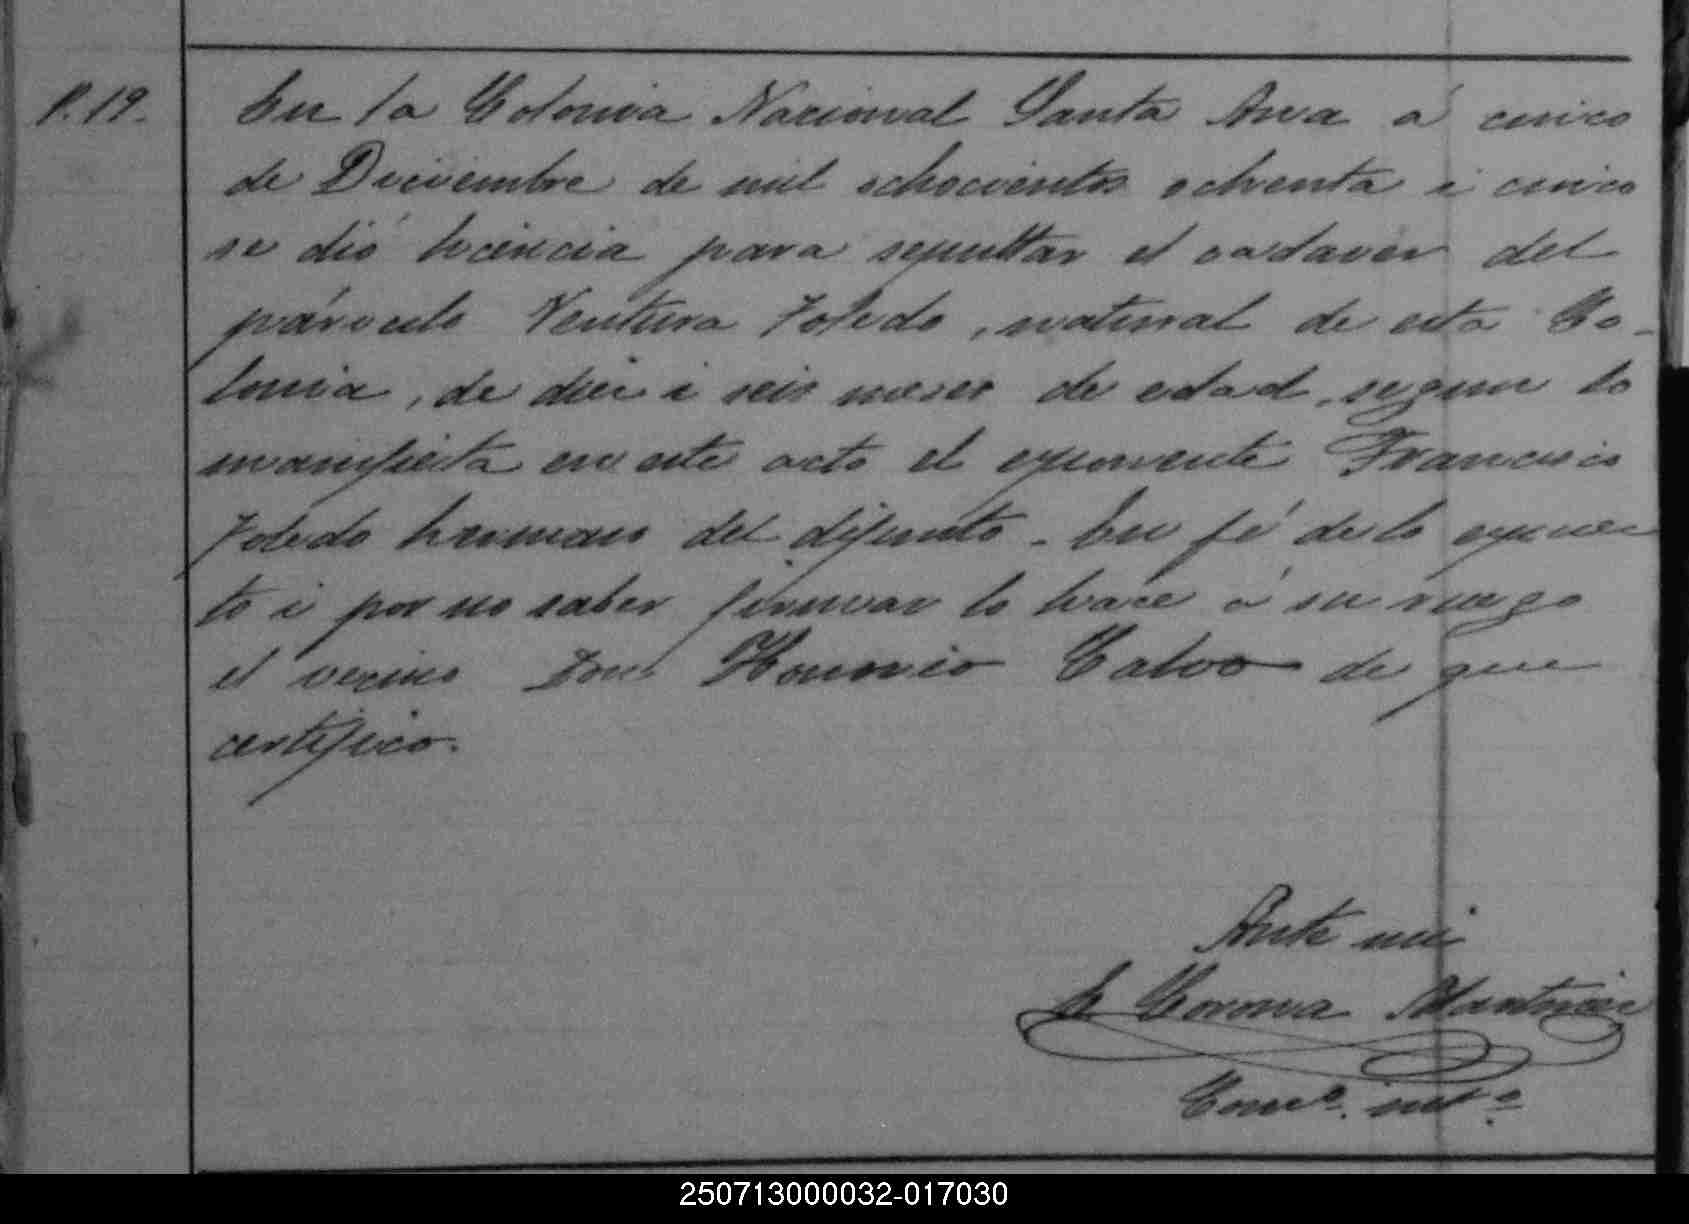 P. 19.
En la Colonia Nacional Santa Ana á cinco
de Diciembre de mil ochocientos ochenta i cinco
se dió licencia para sepultar el cadaver del
párvulo Ventura Toledo, natural de esta Co-
lonia, de diez i seis meses de edad, segun lo
manifiesta en este acto el exponente Francisco
Toledo hermano del difunto. En fé de lo expues
to i por no saber firmar lo hace á su ruego
el vecino Don Calvo de que
certifico.
Ante mi
E Corona Martinez
Comº. intº.
250713000032-017030